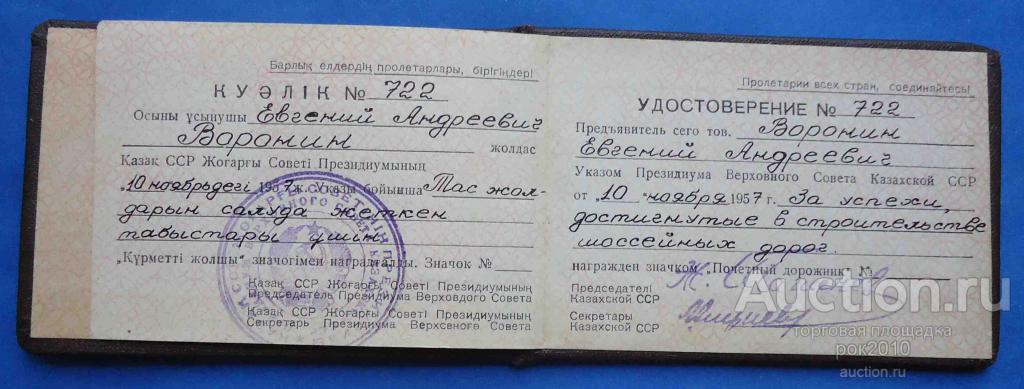 Барлық елдердің пролетарлары, бірігіңдер!
КУӘЛІК № 722
Осыны ұсынушы Евгений Андреевич
Воронин жолдас
Қазақ ССР Жоғарғы Советі Президиумының
„10 ноябрьдегі 1957 ж. Указы бойынша Тас жол-
дарын салуда жеткен
табыстары үшін
„Құрметті жолшы" значогімен наградталды. Значок №
Қазақ ССР Жоғарғы Советі Президиумының
Председатель Президиума Верховного Совета
Қазақ ССР Жоғарғы Советі Президиумының
Секретарь Президиума Верховного Совета
Пролетарии всех стран, соединяйтесь!
УДОСТОВЕРЕНИЕ № 722
Предъявитель сего тов. Воронин
Евгений Андреевич
Указом Президиума Верховного Совета Казахской ССР
от „10" ноября 1957 г. За успехи,
достигнутые в строительстве
шоссейных дорог.
награжден значком „Почетный дорожник" №
Председателі
Казахской ССР
Секретары
Казахской ССР
Auction.ru
торговая площадка
рок2010
auction.ru